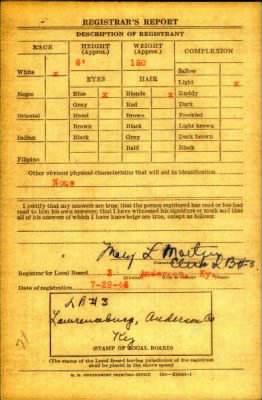 REGISTRAR'S REPORT
DESCRIPTION OF REGISTRANT
RACE HEIGHT (Approx.) WEIGHT (Approx.) COMPLEXION
6' 150
Sallow
White x Light x
EYES HAIR
Negro Blue x Blonde x Ruddy
Gray Red Dark
Oriental Hazel Brown Freckled
Brown Black Light brown
Indian Black Gray Dark brown
Bald Black
Filipino
Other obvious physical characteristics that will aid in identification
None
I certify that my answers are true; that the person registered has read or has had
read to him his own answers; that I have witnessed his signature or mark and that
all of his answers of which I have knowledge are true, except as follows:
Mary L
Clerk LB#3
Registrar for Local Board 3 Anderson, Ky.
Date of registration 7-29-46
LB#3
Lawrenceburg, Anderson Co
Key
(STAMP OF LOCAL BOARD)
(The stamp of the Local Board having jurisdiction of the registrant
shall be placed in the above space)
U. S. GOVERNMENT PRINTING OFFICE